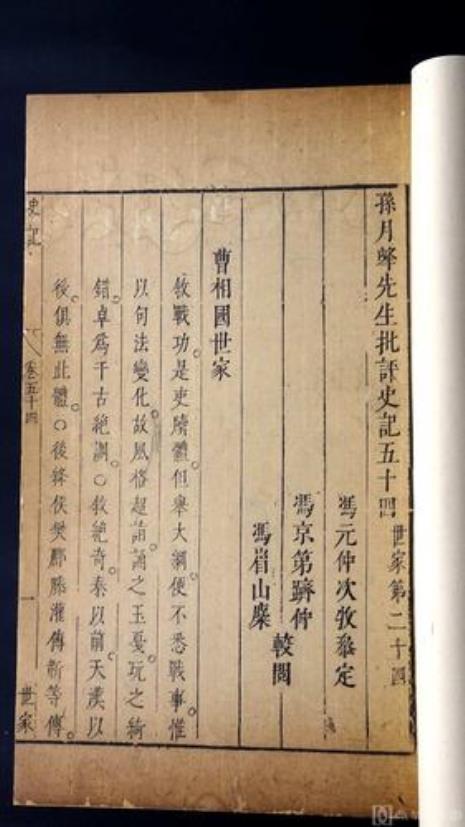 孫月峰先生批評史記五十四
世家第二十四
馮元仲次牧叅定
馮京第躋仲
馮眉山麋
較閲
曹相國世家
敘戰功是吏牘體但舉大綱便不悉戰事惟
以句法變化故風格超誦之玉戛玩之綺
錯卓爲千古絶調○敘絶奇秦以前天漢以
後俱無此體○後絳侯樊酈滕灌傅靳等傳
史記
卷五十四
一
世家